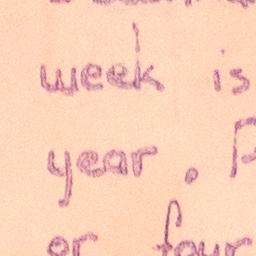 week is
year .
or four